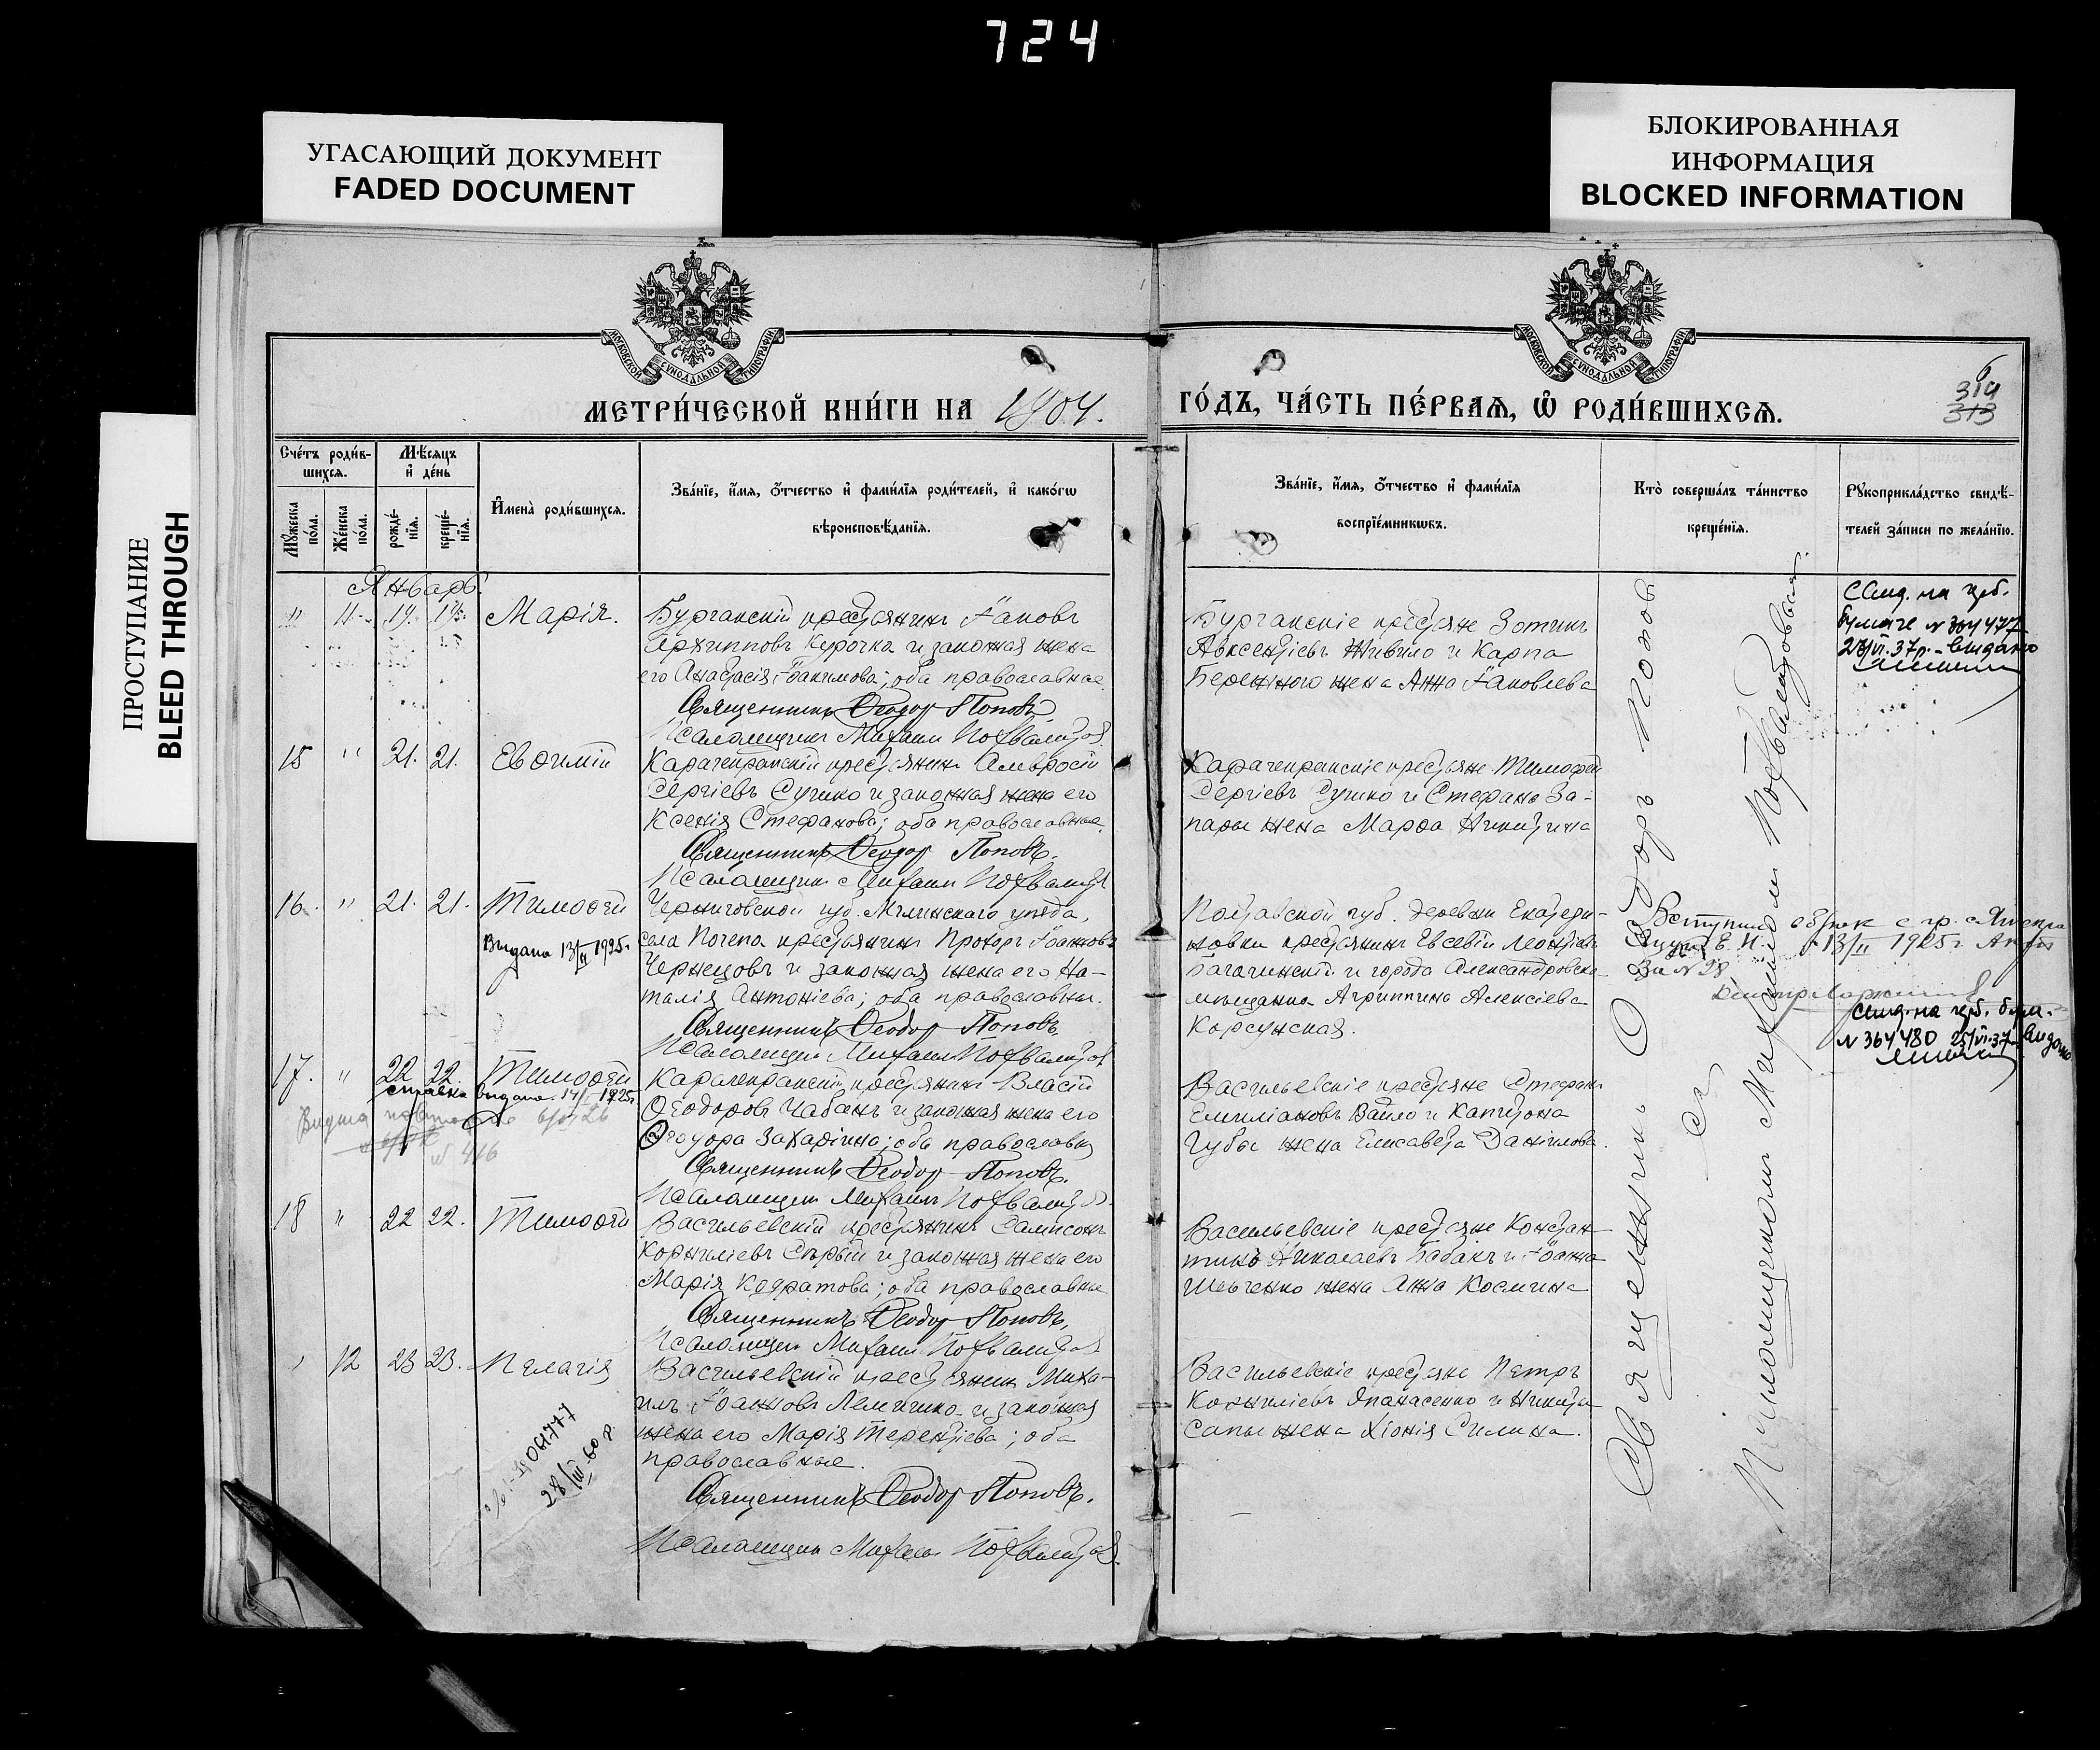 724
УГАСАЮЩИЙ ДОКУМЕНТ
FADED DOCUMENT
БЛОКИРОВАННАЯ
ИНФОРМАЦИЯ
BLOCKED INFORMATION
ПРОСТУПАНИЕ
BLEED THROUGH
МОСКОВСКОЙ СѴНОДАЛЬНОЙ ТИПОГРАФІИ
МОСКОВСКОЙ СѴНОДАЛЬНОЙ ТИПОГРАФІИ
МЕТРИ́ЧЕСКОЙ КНИ́ГИ НА 1904.
ГО́ДЪ, ЧА́СТЬ ПЕ́РВАѦ, Ѽ РОДИ́ВШИХСѦ.
6
314
313
Сче́тъ роди́в-
шихсѧ.
Мѹ́жеска по́ла.
Же́нска по́ла.
Мѣ́сѧцъ
и҆ де́нь
рожде́-
нїѧ.
креще́-
нїѧ.
И҆мена̀ роди́вшихсѧ.
Зва́нїе, и҆́мѧ, ѻ҆́тчество и҆ фами́лїѧ роди́телей, и҆ како́гѡ
вѣроисповѣ́данїѧ.
Зва́нїе, и҆́мѧ, ѻ҆́тчество и҆ фами́лїѧ
воспрїе́мникѡвъ.
Кто̀ соверша́лъ та́инство
креще́нїѧ.
Рꙋкоприкла́дство свидѣ́-
телей за́писи по жела́нїю.
Январь.
" 11. 14. 15. Марія.
Бурганскій крестьянинъ Іаковъ
Архипповъ Курочка и законная жена
его Анастасія Іоакимова; оба православные.
Священникъ Ѳеодор Поповъ.
Псаломщикъ Михаил Похвалитов
Бурганскіе крестьяне Зотикъ
Авксентіевъ Живило и Карпа
Бережного жена Анна Іаковлева
Свид. на герб.
бумаге № 364477
27/VI.37р.- видано
15 " 21. 21. Евѳимій
Карачекракскій крестьянинъ Амвросій
Сергіевъ Сушко и законная жена его
Ксенія Стефанова; оба православные.
Священникъ Ѳеодор Поповъ.
Псаломщик Михаил Похвалитов
Карачекракскіе крестьяне Тимоѳей
Сергіевъ Сушко и Стефана За-
пары жена Марѳа Никитина
16. " 21. 21. Тимоѳей
Выдана 13/II 1925г.
Черниговской губ. Мглинскаго уезда,
крестьянинъ Прохоръ Іоанновъ
Чернецовъ и законная жена его На-
талія Антоніева; оба православные.
Священникъ Ѳеодор Поповъ.
Псаломщик Михаил Похвалитов
Полтавской губ. деревни Екатери-
новки крестьянинъ Евсевій Леонтіевъ
Багачинскій и города Александровска
мещанка Агриппина Алексіева
Корсунская.
13/II 1925г.
За № 28
Свид. на герб. бум.
№ 364480 25/VI-37 видано
17. " 22 22. Тимоѳей
справка выдана. 14/I 1925г.
№ 416
Карачекракскій крестьянинъ Власій
Ѳеодоровъ Чабанъ и законная жена его
Ѳеодора Захаріина; оба православные
Священникъ Ѳеодор Поповъ.
Псаломщик Михаилъ Похвалитов.
Васильевскіе крестьяне Стефанъ
Емиліановъ Вайло и Капитона
Губы жена Елисавета Даніилова.
18 " 22 22. Тимоѳей
Васильевскій крестьянинъ Сампсонъ
Корниліевъ Сѣрый и законная жена его
Марія Кодратова; оба православные
Священникъ Ѳеодор Поповъ,
Псаломщик Михаил Похвалитов
Васильевскіе крестьяне Констан-
тинъ Николаевъ Бабакъ и Іоанна
Шевченко жена Анна Космина
" 12 23 23. Пелагія
28/III-60 г.
Васильевскій крестьянинъ Миха-
илъ Іоанновъ и законная
жена его Марія Терентіева; оба
православные.
Священникъ Ѳеодор Поповъ.
Псаломщик Михаил Похвалитов.
Васильевскіе крестьяне Петръ
Корниліевъ Опанасенко и Никиты
Сапы жена Хіонія Силина.
Священникъ Ѳеодоръ Поповъ
съ
Псаломщикомъ Михаиломъ Похвалитовымъ.